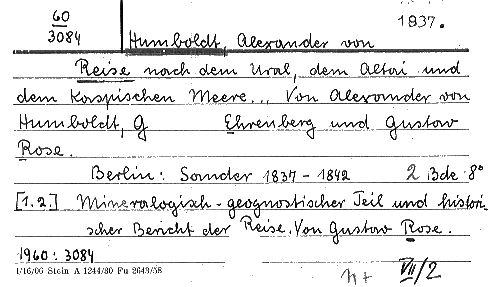 60
3084
Humboldt, Alexander von 1837.
Reise nach dem Ural, dem Altai und
dem Kaspischen Meere... Von Alexander von
Humboldt, G Ehrenberg und Gustav
Rose.
Berlin: Sander 1837 - 1842 2 Bde 8°
[1.2.] Mineralogisch-geognostischer Teil und histori
scher Bericht der Reise. Von Gustav Rose.
1960: 3084
1/16/06 Stein A 1244/80 Fu 2643/58
VII/2